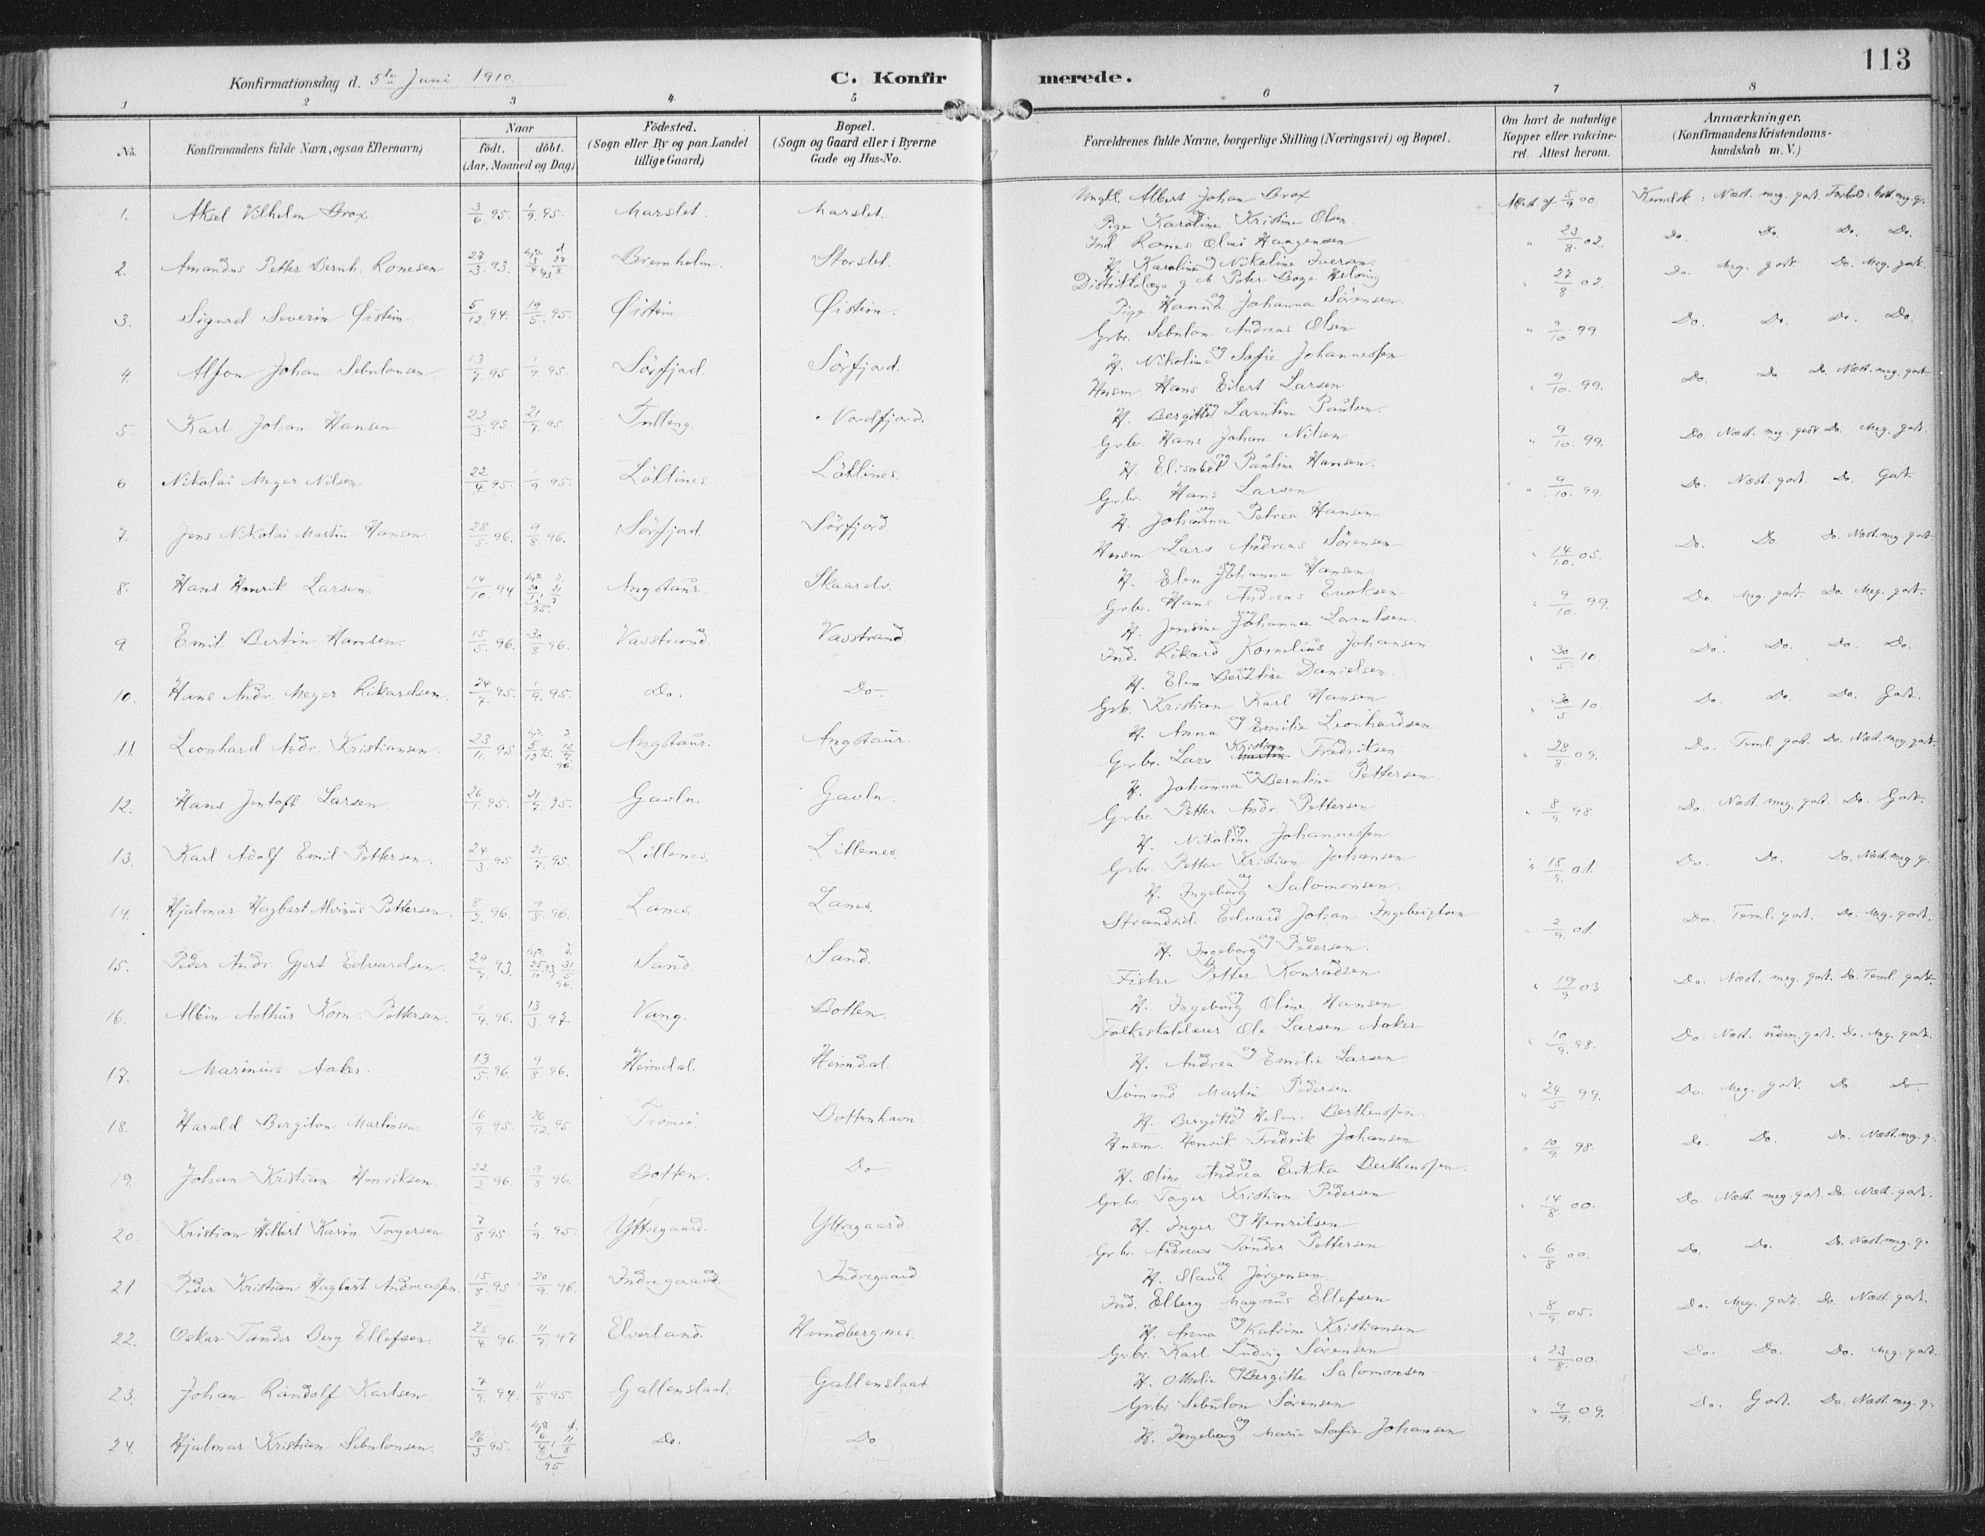 113
Konfirmationsdag d. 5te Juni 1910.
C. Konfirmerede.
1 2 3 4 5 6 7 8
No.
Konfirmandens fulde Navn, ogsaa Efternavn)
Naar
født. døbt.
(Aar, Maaned og Dag)
Fødested.
(Sogn eller By og paa Landet
tillige Gaard)
Bopæl.
(Sogn og Gaard eller i Byerne
Gade og Hus-No.
Forældrenes fulde Navne, borgerlige Stilling (Næringsvei) og Bopæl.
Om havt de naturlige
Kopper eller vaccine-
ret. Attest herom.
Anmærkninger.
(Konfirmandens Kristendoms-
kundskab m. V.)
1. Aksel Vilhelm Brox. 3/6 95. 1/9 95. Marslet. Marslet. Ungkl. Albert Johan Brox
og
Pige Karoline Kristine Olsen Attest af 5/9 00. Kundsk: Næst. meg. godt. Forhold: Næst. meg. g.
2. Amandus Petter Bernh. Ronesen 27/3 93. Bremholm. Storslet. Ind. Rones Olai Haagensen
og
H. Karoline Nikoline Iversen. " 23/8 02. Do. Do. Do. Do.
3. Sigurd Severin Øistein 5/12 94. 19/5 95. Øistein Øistein. Distriktslæge g. m. Peter Boge Helving
og
Pige Hanna Johanna Sørensen. " 27/8 02. Do. Meg. godt. Do. Meg. godt.
4. Alfon Johan Sebulonsen 13/7 95. 1/9 95. Sörfjord. Sörfjord. Grbr. Sebulon Andreas Olsen
og
H. Nikoline Sofie Johannessen. " 9/10 99 Do. Do. Do. Do.
5. Karl Johan Hansen 23/3 95. 21/7 95. Tulleng. Nordfjord. Husm. Hans Eilert Larsen
og
H. Bergitte Larntine Paulsen. " 9/10 99. Do. Do Do. Næst. meg. godt
6 Nikolai Meyer Nilsen. 22/4 95. 1/9 95. Löktines. Löktines. Grbr. Hans Johan Nilsen
og
H. Elisabet Pauline Hansen. " 9/10 99. Do. Næst. meg. godt Do. Meg. godt.
7. Jens Nikolai Martin Hansen 28/5 96. 9/8 96. Sörfjord. Sörfjord Grbr. Hans Larsen
og
H. Johanna Petrea Hansen. " 9/10 99. Do. Næst. godt. Do. Godt.
8. Hans Henrik Larsen. 14/10 94 Angstaur. Skaarelv. Husm. Lars Andreas Sørensen
og
H. Elen Johanna Hansen. " 14/10 05. Do. Do. Do. Næst. meg. godt.
9 Emil Bertin Hansen. 15/5 96. 30/8 96. Vasstrand Vasstrand Grbr. Hans Andreas Eriksen
og
H. Jensine Johanna Larntsen. " 9/10 99. Do. Meg. godt. Do. Meg. godt.
10. Hans Andr. Meyer Rikardsen 24/7 95. 1/9 95. Do. Do. Ind. Rikard Kornelius Johansen
og
H. Elen Berntine Danielsen. " 30/5 10. Do. Do. Do. Do.
11. Leonhard Andr. Kristiansen. 23/11 95 Angstaur. Angstaur. Grb. Kristian Karl Hansen
og
H. Anna Emilie Leonhardsen " 30/5 10. Do. Do. Do. Godt.
12. Hans Jentoft Larsen. 26/1 95. 21/7 95. Gavln. Gavln. Grbr. Lars Kristian Fredriksen
og
H. Johanna Berntine Pettersen " 28/8 09. Do. Teml. godt. Do. Næst. meg. godt.
13. Karl Adolf Emil Pettersen. 24/3 95. 21/7 95. Lillenes. Lillenes Grbr. Petter Andr. Pettersen
og
H. Nikoline Johannessen. " 8/9 98. Do. Næst. meg. godt. Do. Godt.
14. Hjalmar Hagbart Alvinus Pettersen. 8/3 96. 9/8 96. Lanes. Lanes. Grbr. Petter Kristian Johansen
og
H. Ingeborg Salomonsen. " 18/9 01. Do. Do. Do. Næst. meg. g.
15. Peder Andr. Gjert Edvardsen. Sand. Sand. Strandsid. Edvard Johan Ingebrigtsen
og
H. Ingeborg Pedersen. " 2/9 01. Do. Teml. godt. Do. Meg. godt.
16. Albin Arthur Korn. Pettersen. 1/4 96. 13/3 97 Vang. Botten. Fisker Petter Konradsen
og
H. Ingeborg Oline Hansen " 19/9 03 Do. Næst. meg. godt. Do. Teml. godt.
17. Marinius Aaker. 13/5 96 9/8 96. Heimdal. Heimdal Folkeskolelærer Ole Larsen Aaker
og
H. Andrea Emilie Larsen. " 10/9 98. Do. Næst. udm. godt. Do. Meg. godt.
18. Harald Bergiton Martinsen. 16/9 95. 26/12 95 Tromsö. Bottenhavn. Sømand Martin Pedersen
og
H. Bergitte Helen Berthensen. " 24/5 99. Do. Meg. godt. Do Do
19. Johan Kristian Henriksen. 22/2 96. 9/8 96. Botten. Do Husm. Henrik Fredrik Johansen
og
H. Oline Andrea Erikka Berthensen. " 10/9 98. Do. Do. Do. Næst. meg. g.
20. Kristian Hilbert Karin Torgersen 7/8 95 1/9 95. Yttregaard. Yttregaard. Grbr. Torger Kristian Pedersen
og
H. Inger Henrilsen. " 14/8 00. Do Næst. meg. godt. Do. Næst. godt.
21 Peder Kristian Hagbart Andreassen. 15/8 95 20/9 96. Indregaard. Indregaard Grbr. Andreas Tønder Pettersen
og
H. Olava Jørgensen. " 6/8 00. Do. Do. Do. Næst. meg. g.
22. Oskar Tønder Berg Ellefsen. 25/4 96. 11/7 97 Elverland. Hundbergnes. Ind. Elberg Magnus Ellefsen
og
H. Anna Katrine Kristiansen " 8/9 05. Do. Meg. godt. Do. Næst godt.
23. Johan Randolf Karlsen 7/9 94. 11/8 95. Gallenslaat. Gallenslaat Grbr. Karl Ludvig Sørensen
og
H. Othelie Bergitte Salomonsen " 23/8 00. Do. Do. Do. Meg. godt.
24. Hjalmar Kristian Sebulonsen. 26/3 95. Do. Do Grbr. Sebulon Sørensen
og
H. Ingeborg Marie Sofie Johansen " 9/9 09. Do. Godt. Do. Næst meg. g.